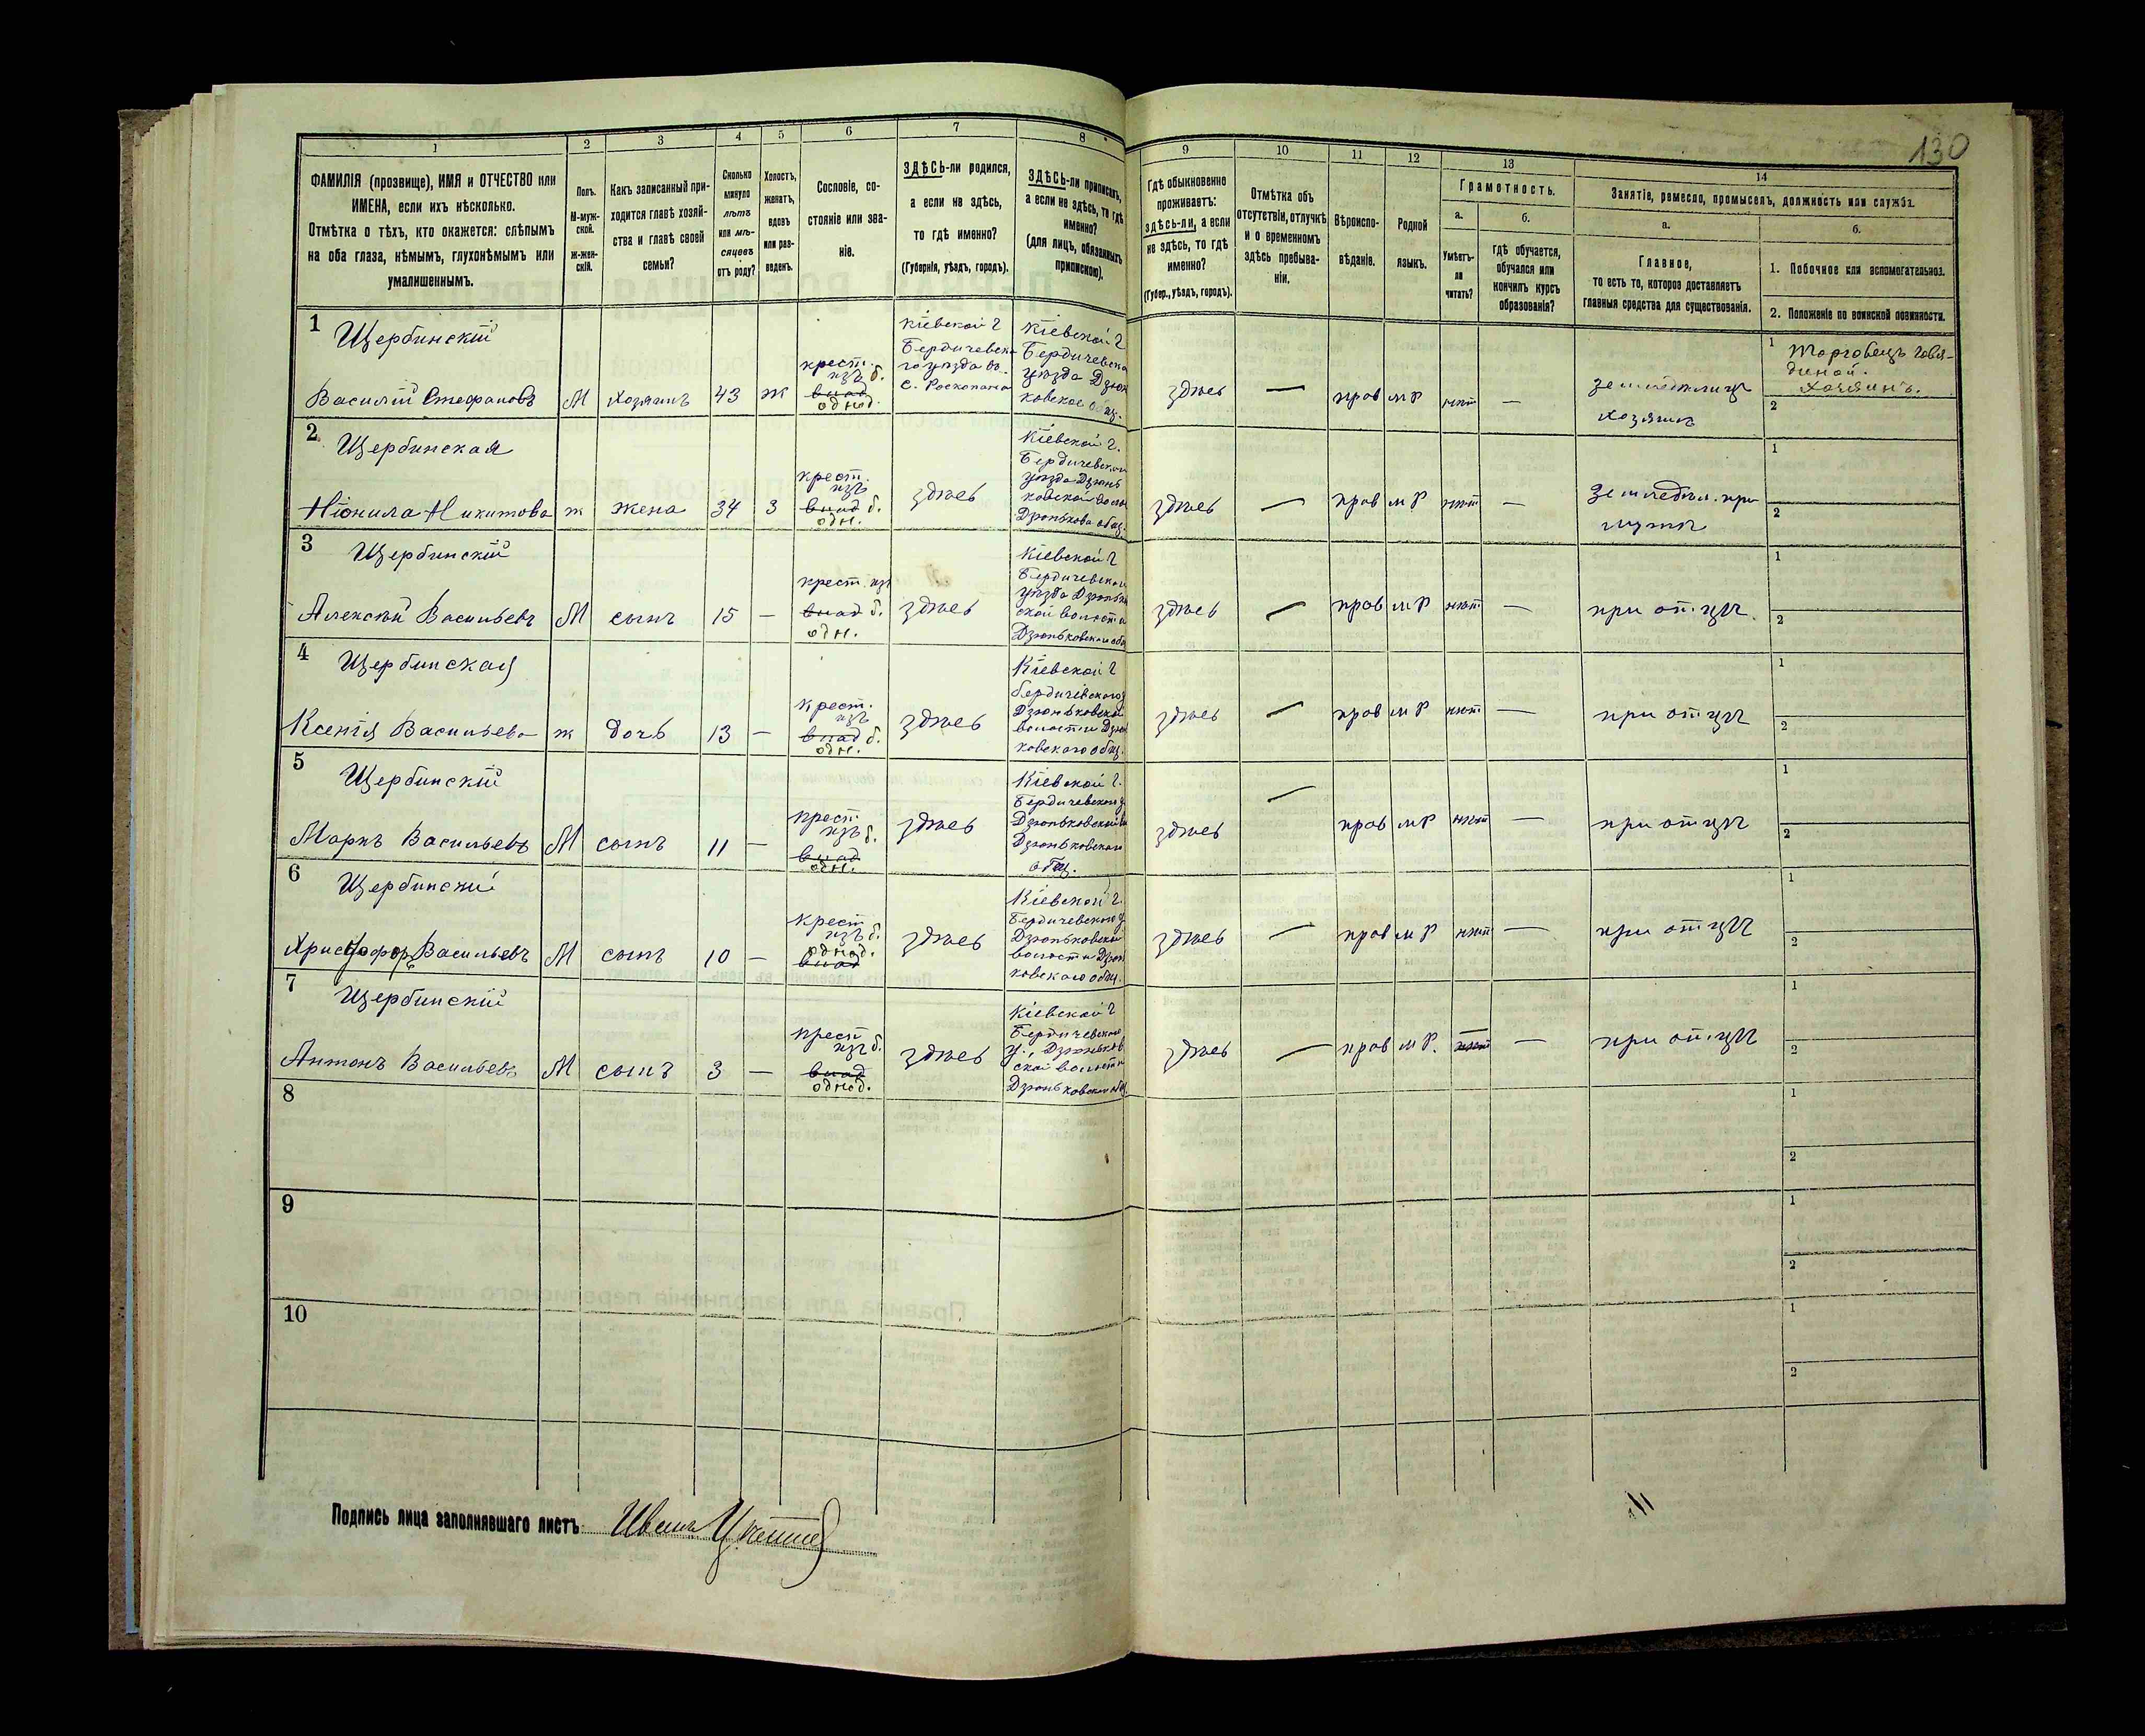 130
1 2 3 4 5 6 7 8 9 10 11 12 13 14
ФАМИЛІЯ (прозвище), ИМЯ и ОТЧЕСТВО или
ИМЕНА, если ихъ нѣсколько.
Отмѣтка о тѣхъ, кто окажется: слѣпымъ
на оба глаза, нѣмымъ, глухонѣмымъ или
умалишеннымъ.
Полъ.
М-муж-
ской.
Ж-жен-
скій.
Какъ записанный при-
ходится главѣ хозяй-
ства и главѣ своей
семьи?
Сколько
минуло
лѣтъ
или мѣ-
сяцевъ
отъ роду?
Холостъ,
женатъ,
вдовъ
или раз-
веденъ.
Сословіе, со-
стояніе или зва-
ніе.
ЗДѢСЬ-ли родился,
а если не здѣсь,
то гдѣ именно?
(Губернія, уѣздъ, городъ).
ЗДѢСЬ-ли приписанъ,
а если не здѣсь, то гдѣ
именно?
(для лицъ, обязанныхъ
припискою).
Гдѣ обыкновенно
проживаетъ:
здѣсь-ли, а если
не здѣсь, то гдѣ
именно?
(Губер., уѣздъ, городъ).
Отмѣтка объ
отсутствіи, отлучкѣ
и о временномъ
здѣсь пребыва-
ніи.
Вѣроиспо-
вѣданіе.
Родной
языкъ.
Грамотность.
а.
Умѣетъ-
ли
читать?
б.
Гдѣ обучается,
обучался или
кончилъ курсъ
образованія?
Занятіе, ремесло, промыселъ, должность или служба.
а.
Главное,
то есть то, которое доставляетъ
главныя средства для существованія.
б.
1. Побочное или вспомогательное.
2. Положеніе по воинской повинности.
1 Щербинскій
Василій Стефановъ М хозяинъ 43 ж
крест.
изъ б.
однод.
Кіевской г
Бердичевска
го уѣзда въ
с. Роскопана
Кіевской г
Бердичевска
уѣзда Дзюн
ковское общ.
здѣсь — прав мР нѣт —
земледѣлиц
хозяинъ
1 Торговецъ говя-
диной.
Хозяинъ.
2
2 Щербинская
Ніонила Никитова ж жена 34 З
крест.
изъ
б.
одн.
здѣсь
Кіевской г.
Бердичевской
уѣзда Дзюнь
ковской воло
Дзюнькова общ.
здѣсь — прав мР нѣт —
земледѣл. при
мужѣ
1
2
3 Щербинскій
Алексѣй Васильевъ М сынъ 15 —
крест. изъ
б.
одн.
здѣсь
Кіевской г
Бердичевской
уѣзда Дзюньк
ской волости
Дзюньковского общ
здѣсь — прав мР нѣт — при отцѣ.
1
2
4 Щербинская
Ксенія Васильева ж дочь 13 —
крест.
изъ
б.
одн.
здѣсь
Кіевской г
бердичівского у
Дзюньковской
волости Дзюн
ковского общ.
здѣсь — прав мР нѣт — при отцѣ
1
2
5 Щербинскій
Маркъ Васильевъ М сынъ 11 —
крест
изъ б.
одн.
здѣсь
Кіевской г.
Бердичевского у.
Дзюньковской в
Дзюньковского
общ.
здѣсь — прав мР нѣт — при отцѣ
1
2
6 Щербинскій
Христофоръ Васильевъ М сынъ 10 —
крест
изъ б.
однод.
здѣсь
Кіевской г.
Бердичевского у
Дзюньковской
волости Дзюн
ковского общ.
здѣсь — прав мР нѣт — при отцѣ
1
2
7 Щербинскій
Антонъ Васильевъ М сынъ 3 —
крест
изъ б.
однод.
здѣсь
Кіевской г
Бердичевского
у., Дзюньков
ской волости
Дзюньковского общ.
здѣсь — прав мР. — — при отцѣ
1
2
8
1
2
9
1
2
10
1
2
Подпись лица заполнявшаго листъ Иванъ